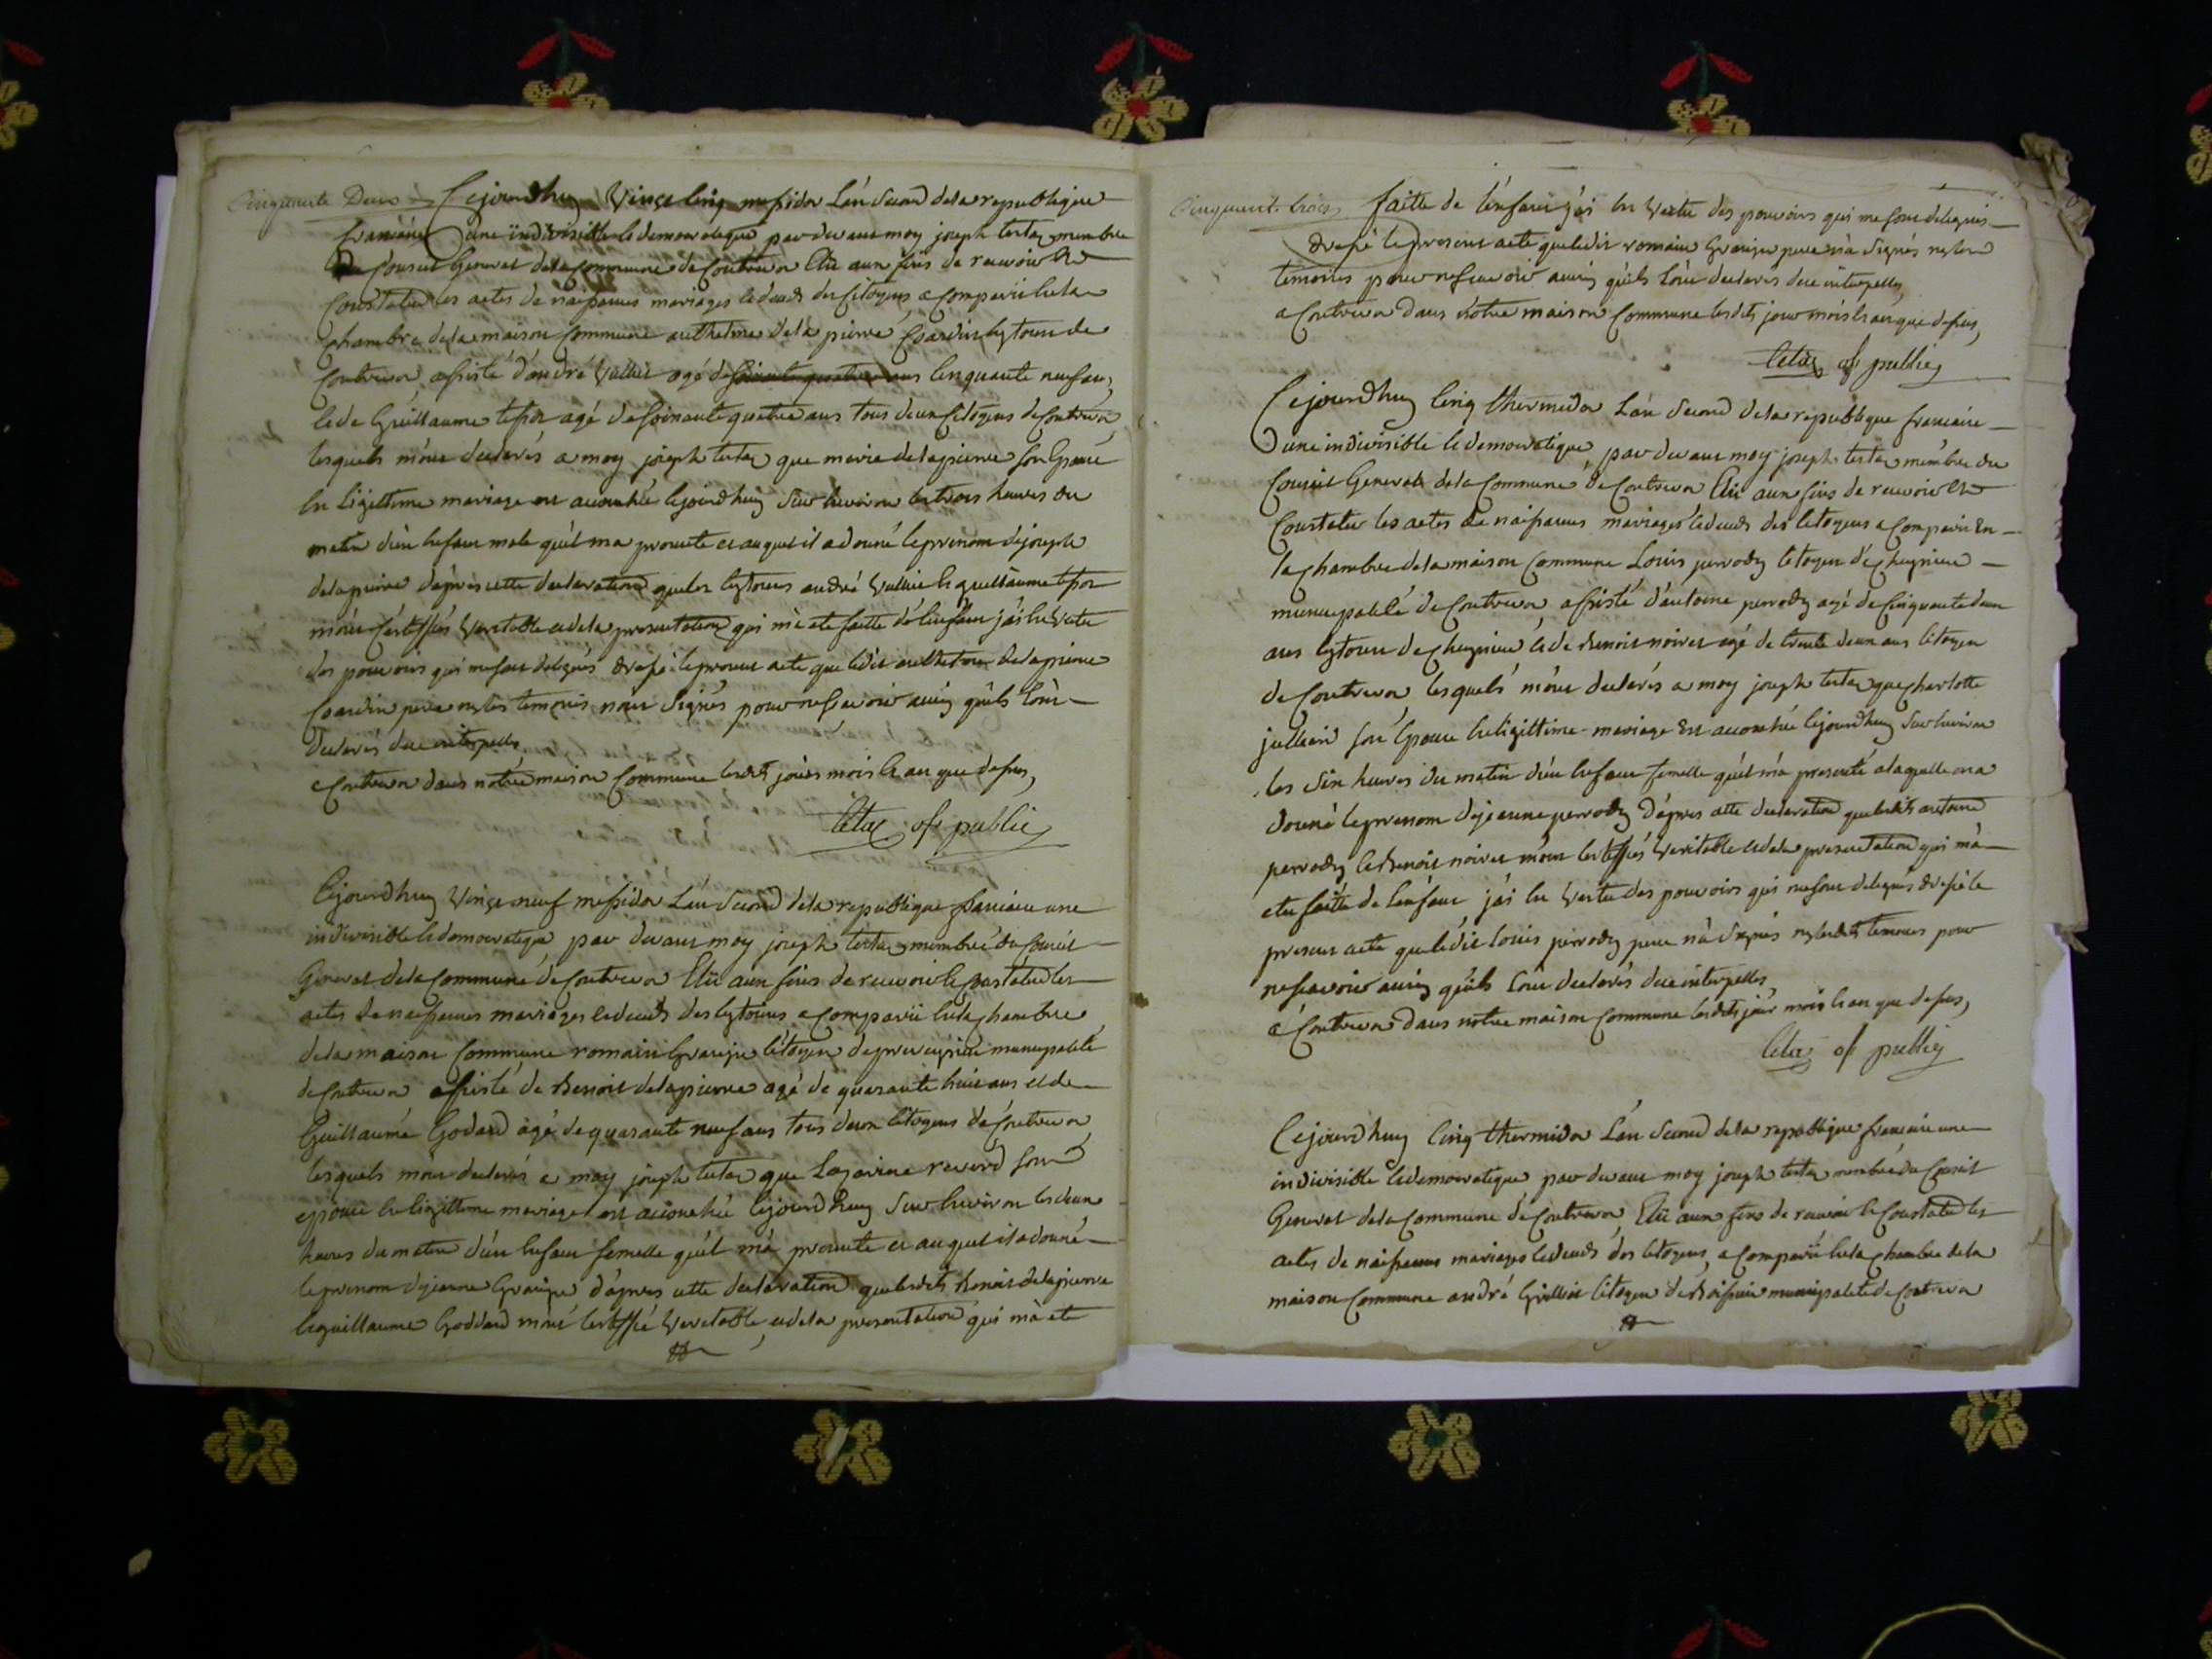 Cinquante Deux
Cejourdhuy Vingt cinq messidor L'an Second de la republique
francaise une indivisible et democratique par devant moy joseph tetaz membre
du Conseil General de la Commune de Contrevoz Elû aux fins de recevoir Et
Constater les actes de naissances mariages et deces des Citoyens a Comparü En la
Chambre de la maison Commune anthelme de la pierre Coardin Cytoien de
Contrevoz assisté d'andré Vulliet agé de soixante quatre ans Cinquante neuf ans
et de Guillaume tessor agé de soixante quatre ans tous deux Citoyens de Contrevoz
lesquels m'ont declarés a moy joseph tetaz que marie delapierre son Epouse
En Ligittime mariage est accouchée Cejourdhuy Sur Environ les trois heures du
matin d'un Enfant male qu'il m'a presenté et auquel il a donné le prenom de joseph
delapierre d'apres cette declaration que les Cytoiens andré Vulliet Et guillaume tessor
m'ont Certiffiés Veritable et de la presentation qui m'a eté faitte de l'enfant j'ai En Vertu
des pouvoirs qui me sont delegués dressé le present acte que ledit anthelme delapierre
Coardin pere ny les temoins n'ont Signés pour ne scavoir ainsy qu'ils l'ont
declarés de ce interpellés
a Contrevoz dans notre maison Commune lesdits jours mois Et an que dessus,
tetaz off public
Cejourdhuy Vingt neuf messidor L'an Second de la republique francaise une
indivisible Et democratique par devant moy joseph tetaz membre du Conseil
General de la Commune de Contrevoz Elû aux fins de recevoir Et Constater les
actes de naissances mariages et deces des Cytoiens a Comparü En la Chambre
de la maison Commune romain Grange Citoyen de municipalité
de Contrevoz assisté de Benoit delapierre agé de quarante huit ans et de
Guillaume Godard agé de quarante neuf ans tous deux Citoyens de Contrevoz
lesquels m'ont declarés a moy joseph tetaz que Lazarine son
epouse En Ligittime mariage est accouchée Cejourdhuy Sur Environ les deux
heures du matin d'un Enfant femelle qu'il m'a presenté et auquel il a donné
le prenom de jeanne Grange d'apres cette declaration que lesdits Benoit delapierre
Et guillaume Goddard m'ont Certiffié Veritable et de la presentation qui m'a eté
Cinquante trois
faitte de l'enfant j'ai En Vertu des pouvoirs qui me sont delegués
dressé le present acte que ledit romain Grange pere n'a Signés ny les
temoins pour ne scavoir ainsy qu'ils l'ont declarés de ce interpellés
a Contrevoz dans notre maison Commune lesdits jour mois Et an que dessus,
tetaz off public
Cejourdhuy Cinq thermidor L'an Second de la republique francaise
une indivisible Et democratique par devant moy joseph tetaz membre du
Conseil General de la Commune de Contrevoz Elû aux fins de recevoir Et
Constater les actes de naissances mariages et deces des Citoyens a Comparü En
la Chambre de la maison Commune Louis perrody Citoyen de Cheignieu
municipalité de Contrevoz assisté d'antoine perrody agé de Cinquante deux
ans Cytoien de Cheignieu et de Benoit noiret agé de trente deux ans Citoyen
de Contrevoz lesquels m'ont declarés a moy joseph tetaz que Charlotte
jullien son Epouse En Ligittime mariage Est accouchée Cejourdhuy Sur Environ
les Six heures du matin d'un Enfant femelle qu'il m'a presenté a laquelle on a
donné le prenom de jeanne perrody d'apres cette declaration que lesdits antoine
perrody et Benoit noiret m'ont Certiffiés Veritable et de la presentation qui m'a
eté faitte de l'enfant j'ai En Vertu des pouvoirs qui me sont delegués dressé le
present acte que ledit Louis perrody pere n'a Signés ny lesdits temoins pour
ne scavoir ainsy qu'ils l'ont declarés de ce interpellés,
a Contrevoz dans notre maison Commune lesdits jour mois Et an que dessus,
tetaz off public
Cejourdhuy Cinq thermidor L'an Second de la republique francaise une
indivisible Et democratique par devant moy joseph tetaz membre du Conseil
General de la Commune de Contrevoz Elû aux fins de recevoir Et Constater les
actes de naissances mariages et deces des Citoyens, a Comparü En la Chambre de la
maison Commune andré Citoyen de municipalité de Contrevoz